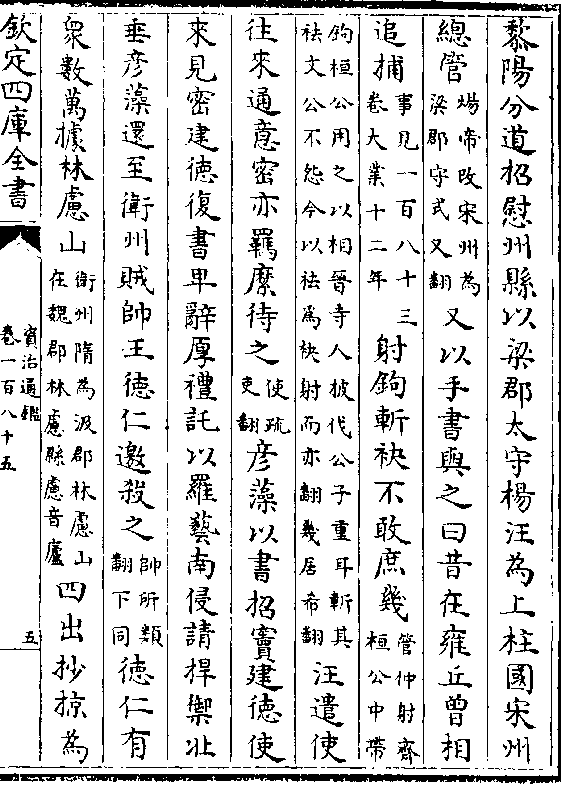 黎陽分道招慰州縣以梁郡太守楊汪為上柱國宋州
總管煬帝改宋州為梁郡守式又翻又以手書與之曰昔在雍丘曾相
追捕事見一百八十三卷大業十二年射鉤斬袂不敢庶幾管仲射齊桓公中帶
鉤桓公用之以相晉寺人披伐公子重耳斬其祛文公不怨今以祛為袂射而亦翻幾居希翻汪遣使
往來通意密亦羈縻待之使疏吏翻彥藻以書招竇建德使
來見密建德復書卑辭厚禮託以羅藝南侵請捍禦北
垂彥藻還至衛州賊帥王德仁邀殺之帥所類翻下同德仁有
衆數萬據林慮山衛州隋為汲郡林慮山在魏郡林慮縣慮音廬四出抄掠為
欽定四庫全書
資治通鑑
卷一百八十五
五